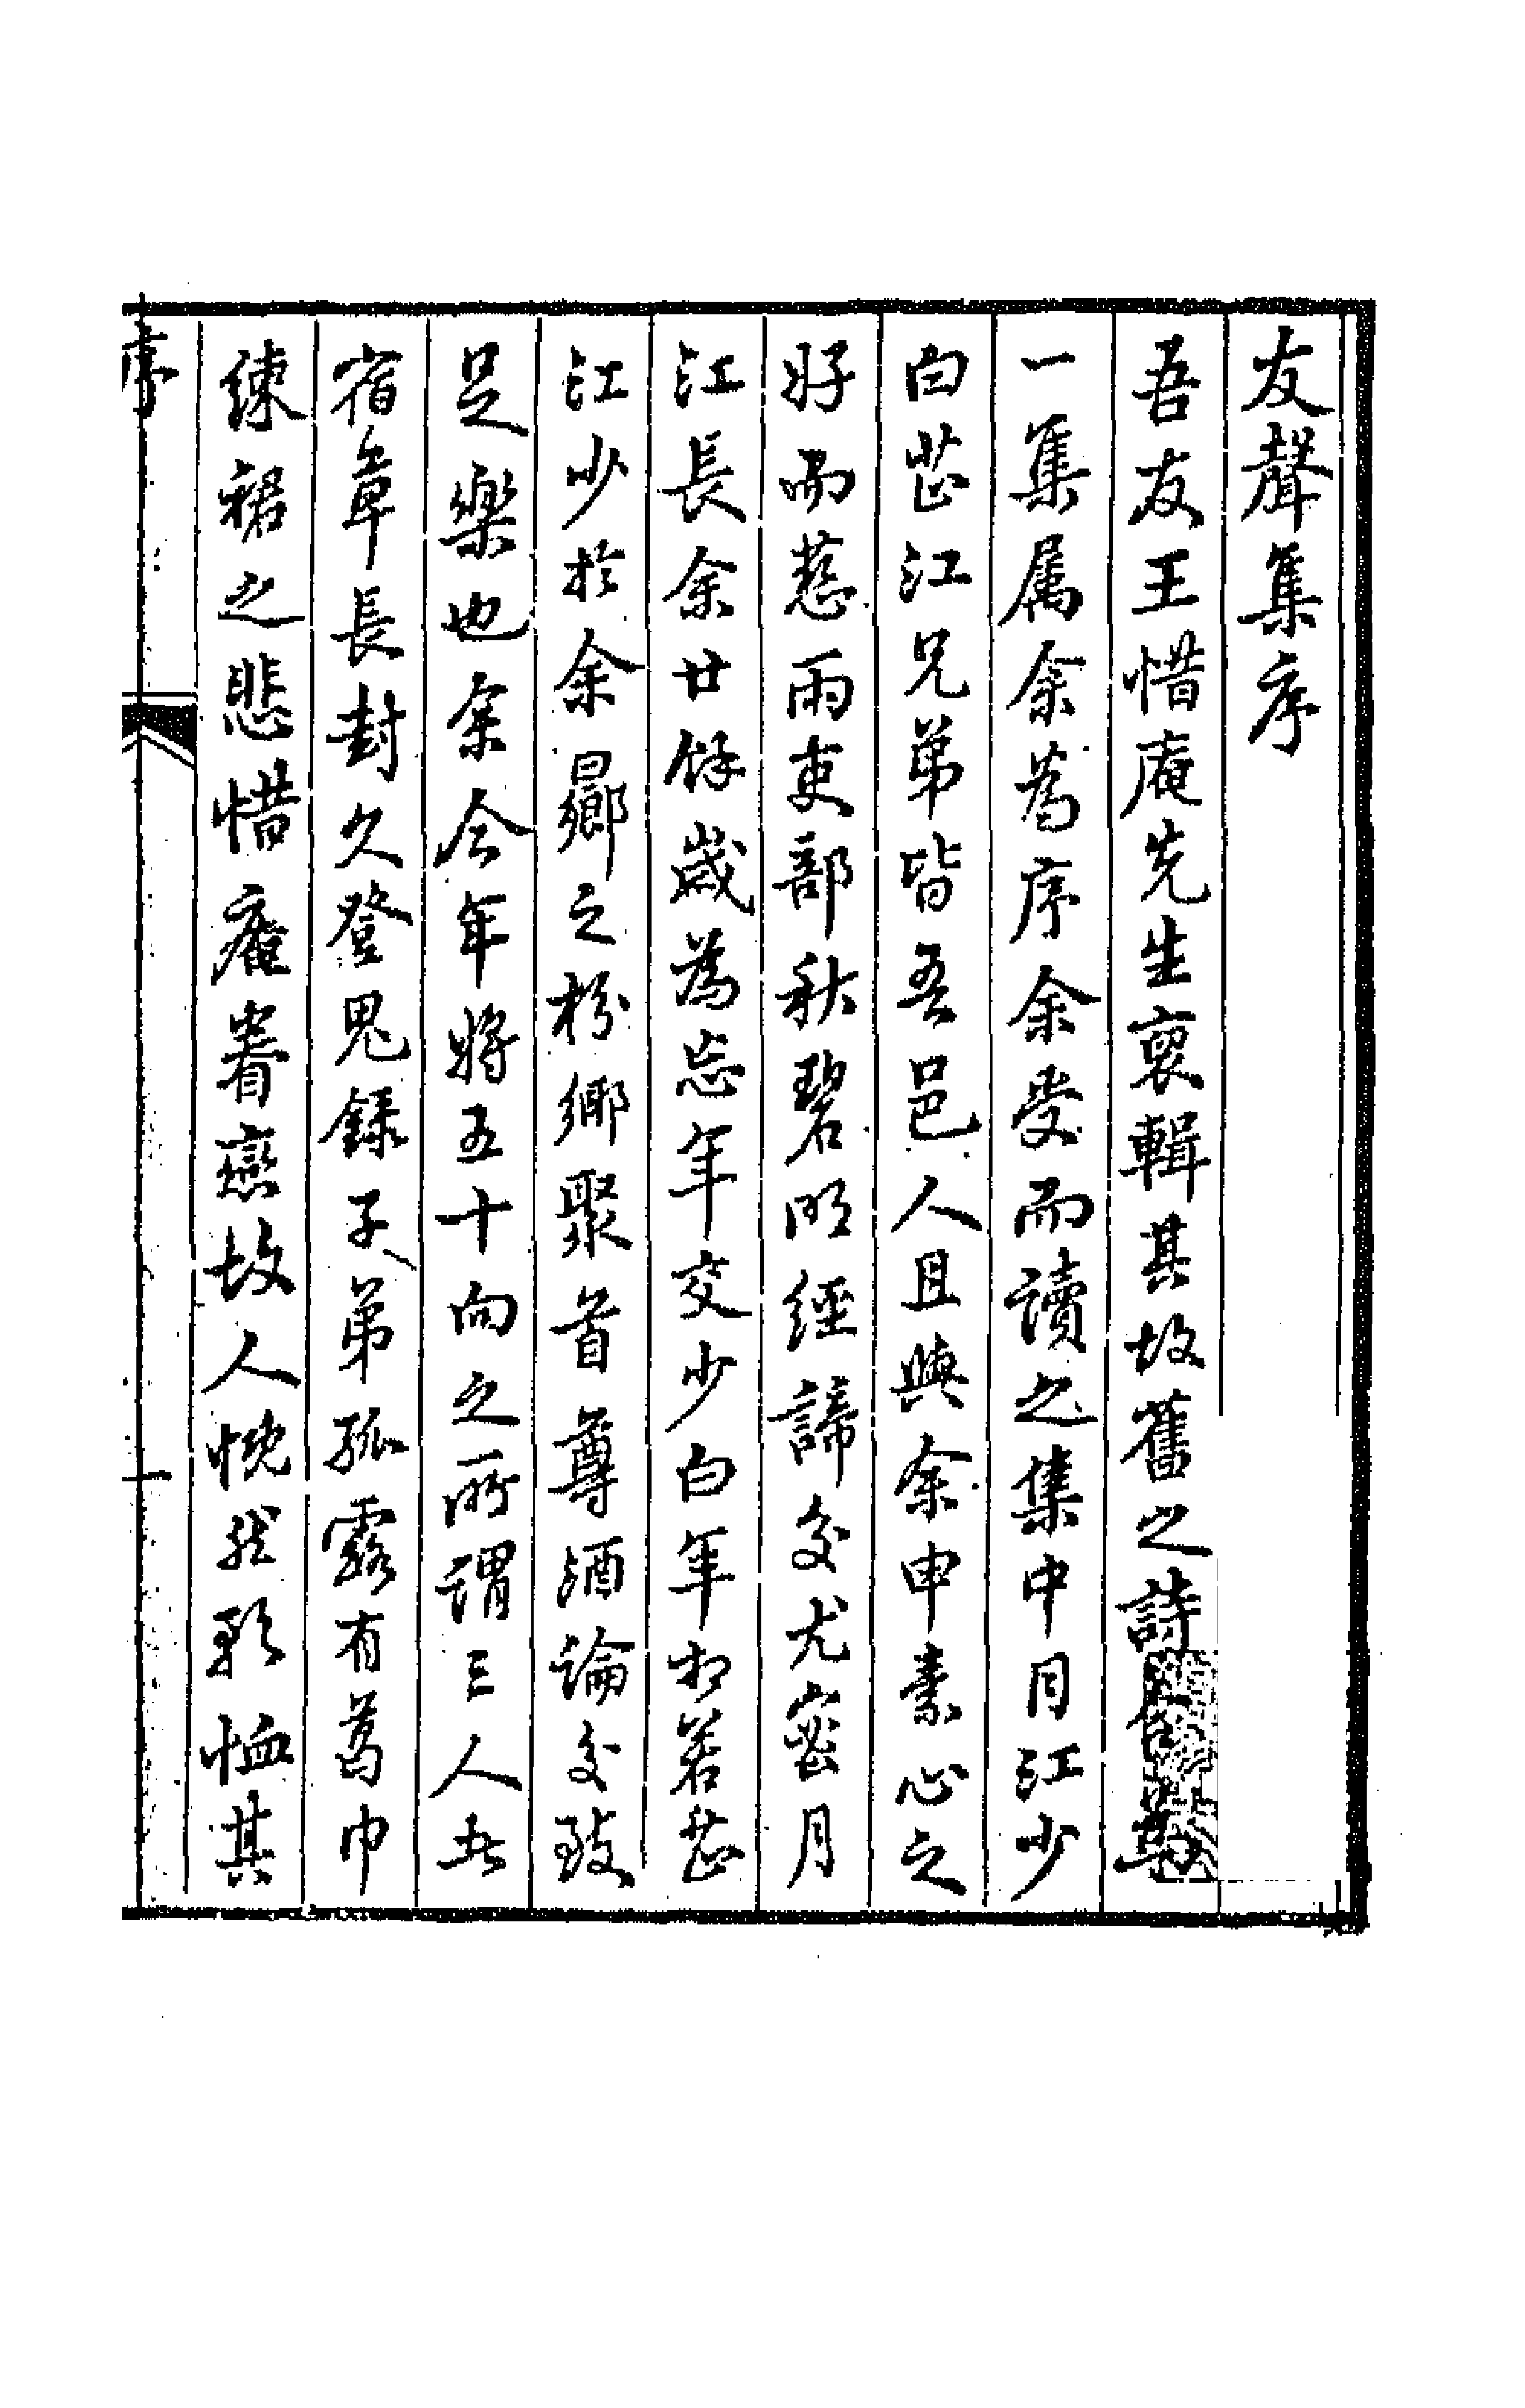 友聲集序
吾友王惜庵先生裒輯其故舊之詩
一集属余為序余受而讀之集中月江少
白芷江兄弟皆吾邑人且與余申素心之
好而慈雨吏部秋碧明經諦交尤密月
江長余廿餘歲為忘年交少白年相若芷
江少於余曏之枌鄉聚首尊酒論交致
足樂也余今年將五十向之所謂三人者
宿草長封久登鬼錄子弟孤露有葛巾
練裙之悲惜庵眷戀故人愴然軫恤其
序
一